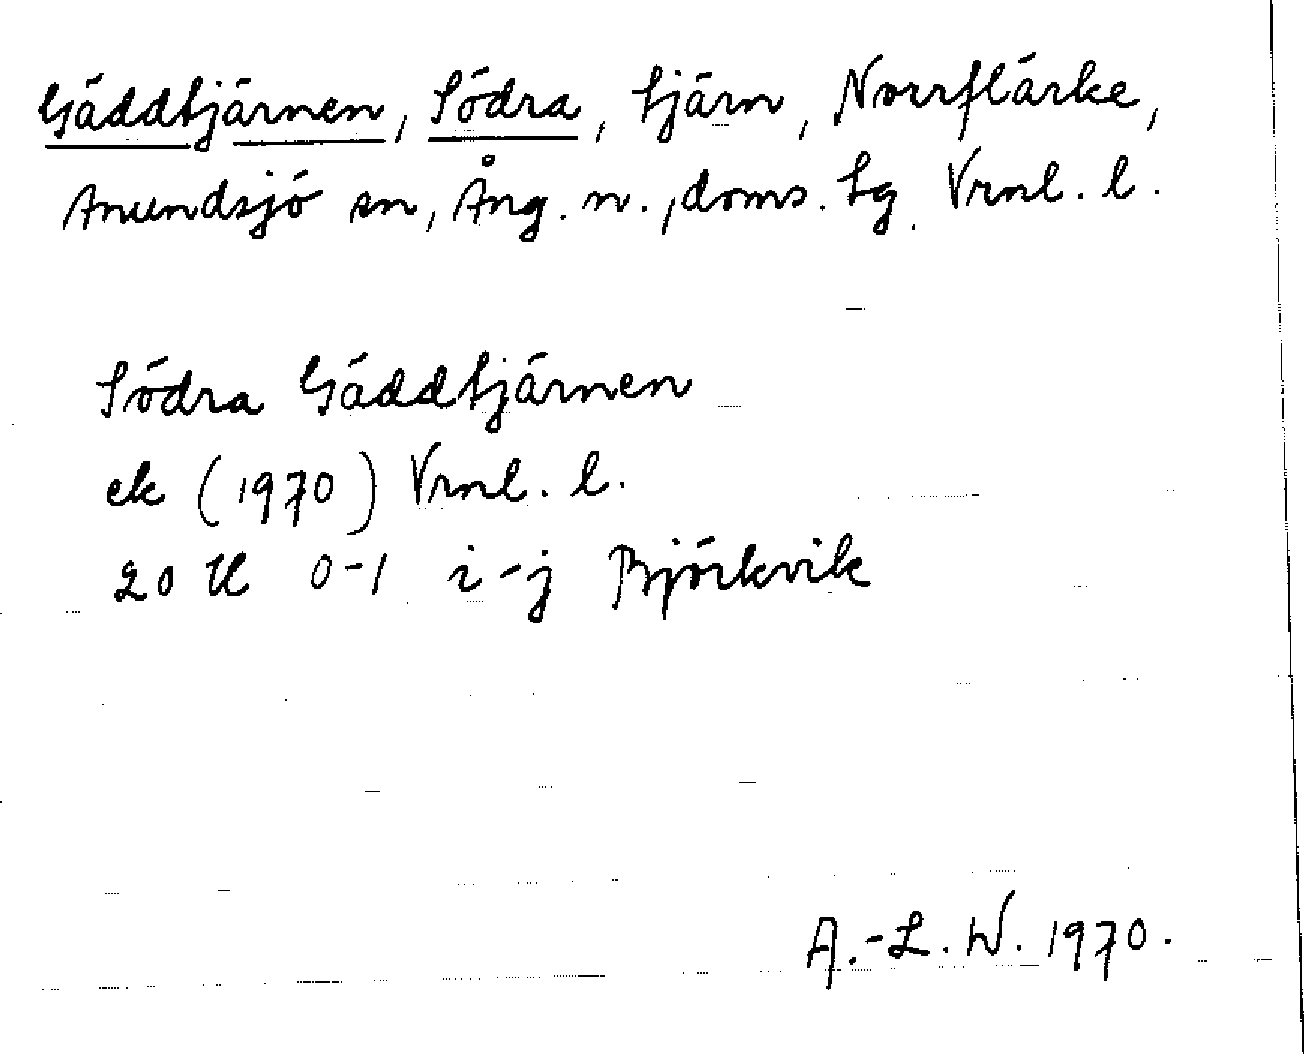 Gäddtjärnen, Södra, tjärn, Norrflärke,
Anundsjö sn, Ång. n., doms. sg. Vrml. l.
Södra Gäddtjärnen
ek (1970) Vrml. l.
20 H 0-1 i-j Björkvik
A.-L. W. 1970.